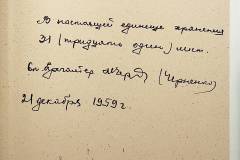 В настоящей единице хранения
31 (тридцать один) лист.
(Черненко)
21 декабря 1959 г.